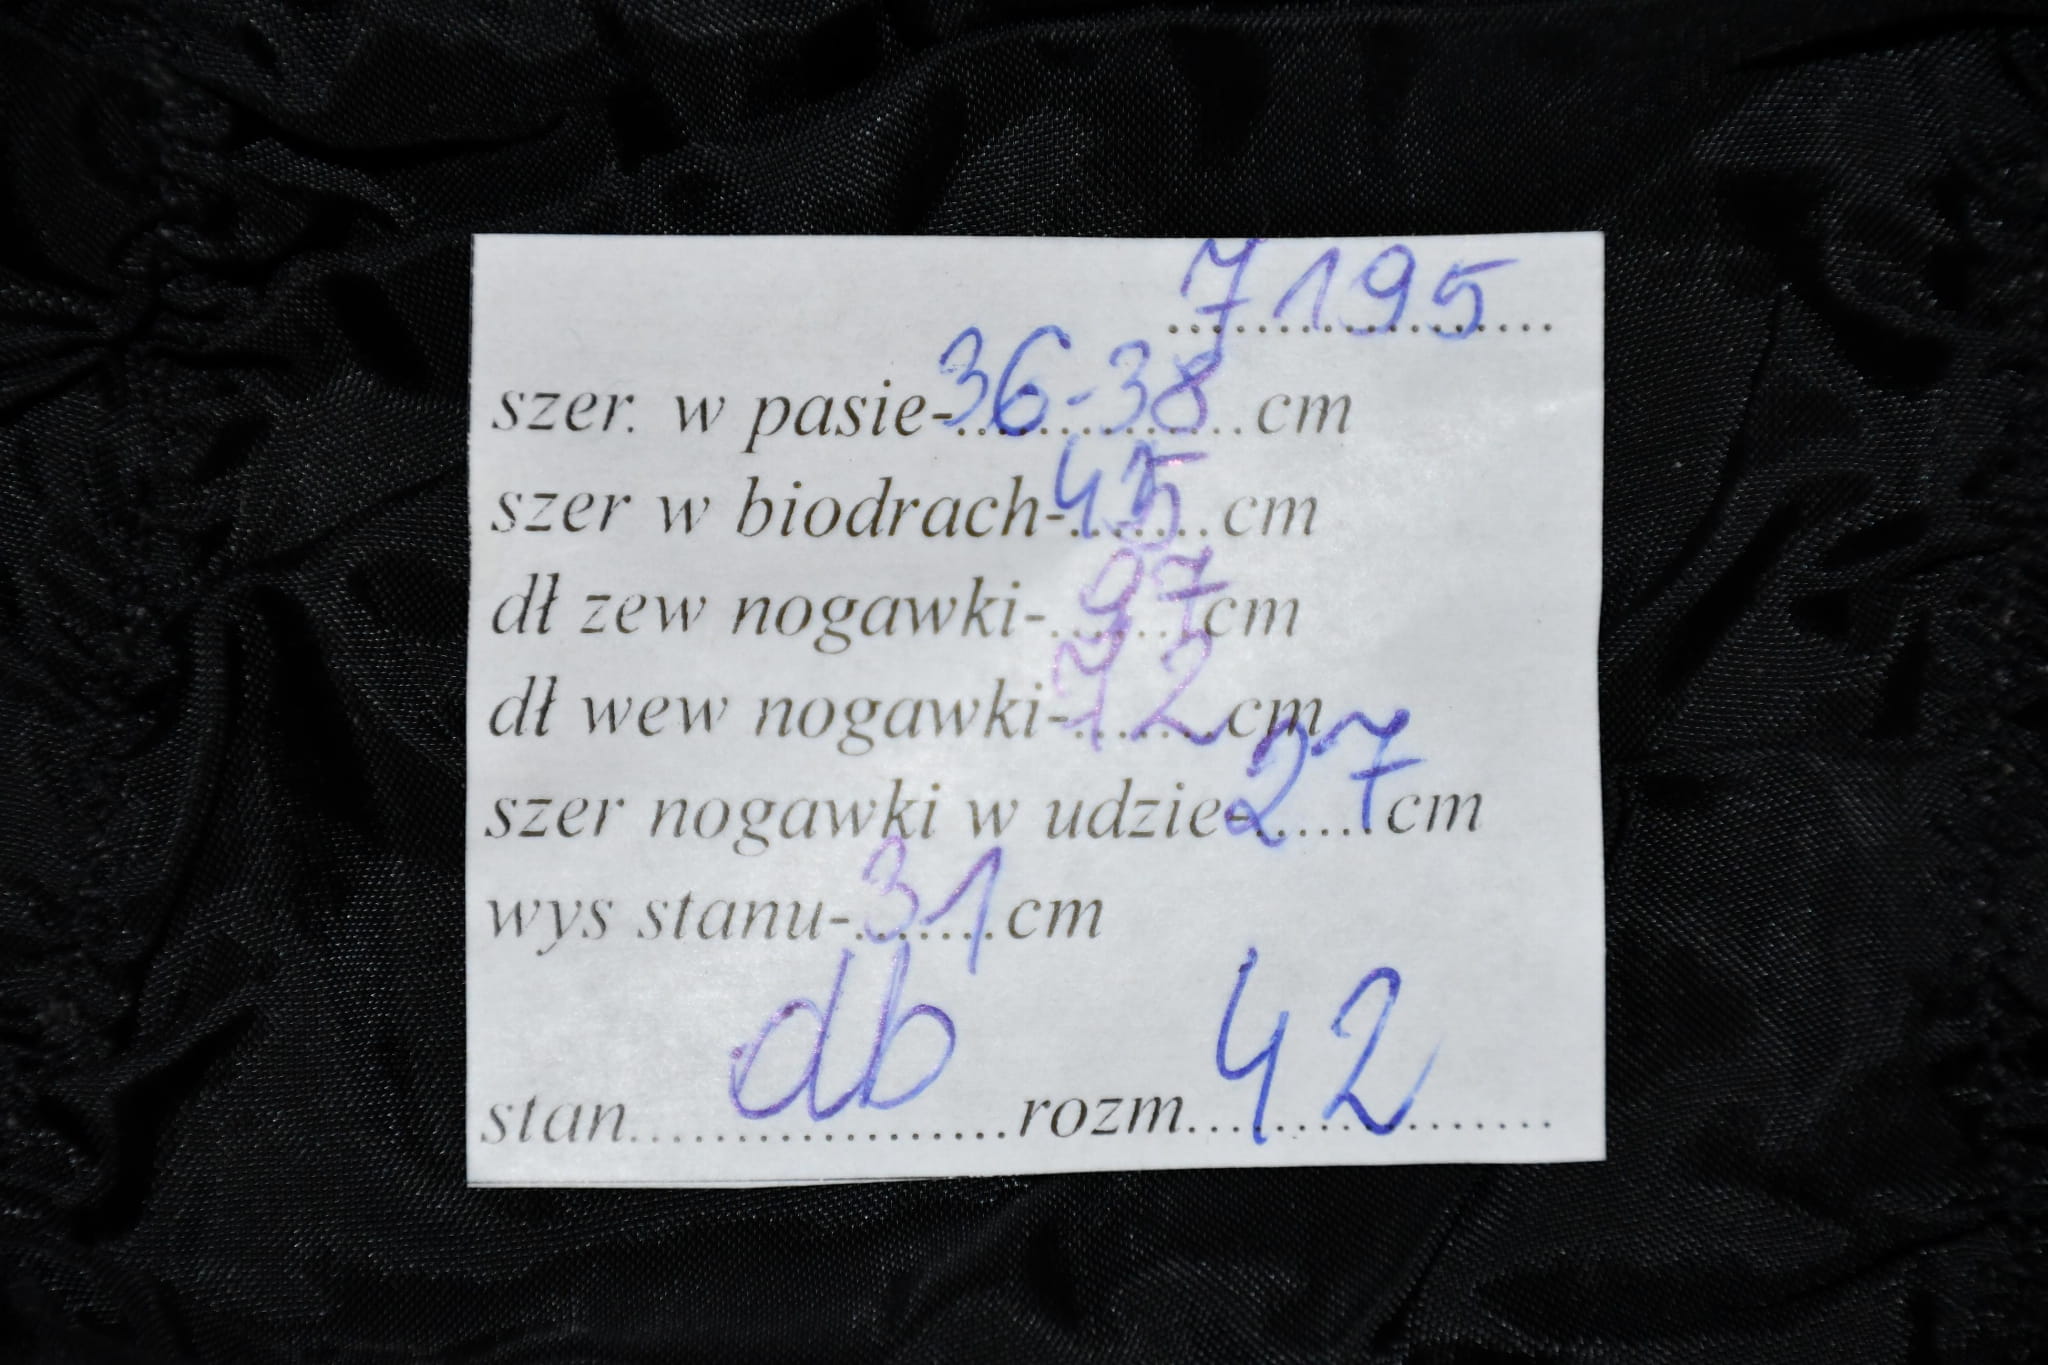 7195
szer. w pasie-36-38 cm
szer w biodrach-45 cm
dł zew nogawki-97 cm
dł wew nogawki-72 cm
szer nogawki w udzie-27 cm
wys stanu-31 cm
stan db rozm 42